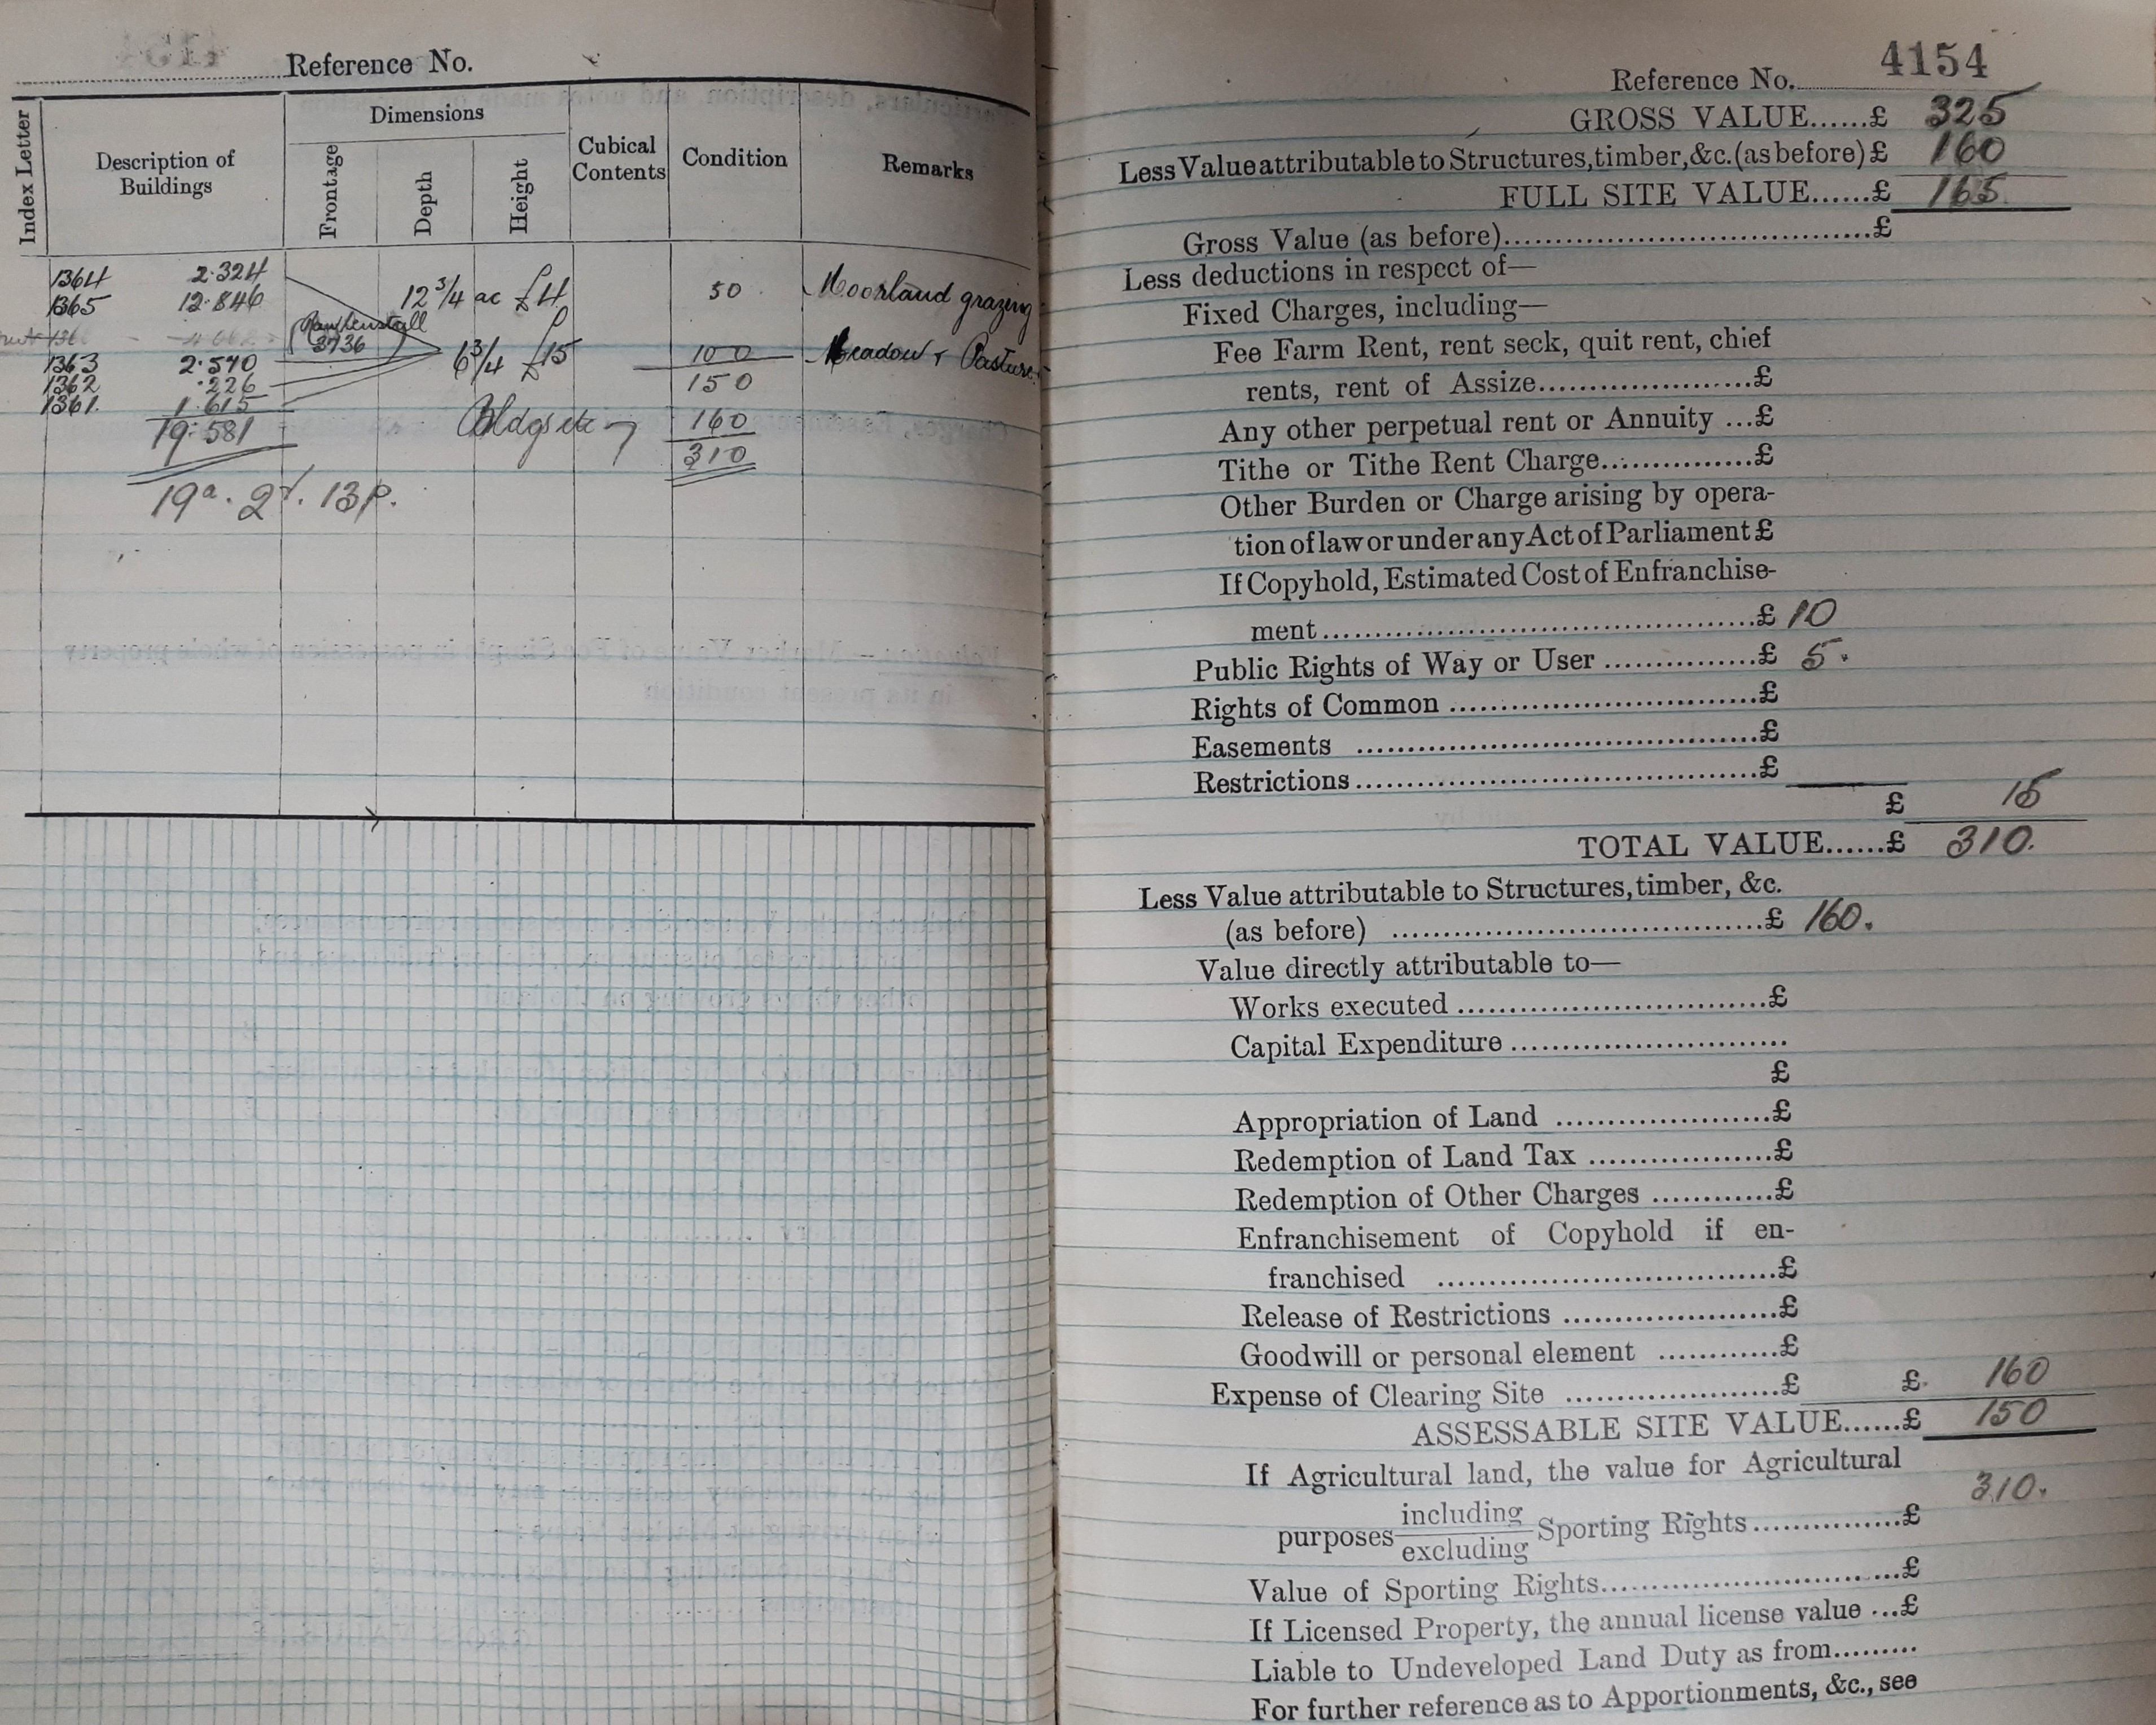 Reference No.
Index Letter
Description of Buildings
Dimensions
Frontage
Depth
Height
Cubical Contents
Condition
Remarks
1364 2.324
1365 12.846 12 3/4 ac £4 50 Moorland grazing
Rawtenstall
3736
1363 2.570 6 3/4 £15 100 Meadow & Pasture
1362 .226 150
1361. 1.615
19.581 Bldgs etc 160
310
19a. 2r. 13p.
Reference No. 4154
GROSS VALUE......£ 325
Less Value attributable to Structures, timber, &c. (as before) £ 160
FULL SITE VALUE......£ 165
Gross Value (as before)......£
Less deductions in respect of—
Fixed Charges, including—
Fee Farm Rent, rent seck, quit rent, chief
rents, rent of Assize......£
Any other perpetual rent or Annuity ...£
Tithe or Tithe Rent Charge......£
Other Burden or Charge arising by opera-
tion of law or under any Act of Parliament £
If Copyhold, Estimated Cost of Enfranchise-
ment......£ 10
Public Rights of Way or User ......£ 5.
Rights of Common ......£
Easements ......£
Restrictions......£
£ 15
TOTAL VALUE......£ 310.
Less Value attributable to Structures, timber, &c.
(as before) ......£ 160.
Value directly attributable to—
Works executed ......£
Capital Expenditure ......
£
Appropriation of Land ......£
Redemption of Land Tax ......£
Redemption of Other Charges ......£
Enfranchisement of Copyhold if en-
franchised ......£
Release of Restrictions ......£
Goodwill or personal element ......£
Expense of Clearing Site ......£ £. 160
ASSESSABLE SITE VALUE......£ 150
If Agricultural land, the value for Agricultural
purposes including/excluding Sporting Rights......£ 310.
Value of Sporting Rights......£
If Licensed Property, the annual license value ...£
Liable to Undeveloped Land Duty as from.........
For further reference as to Apportionments, &c., see